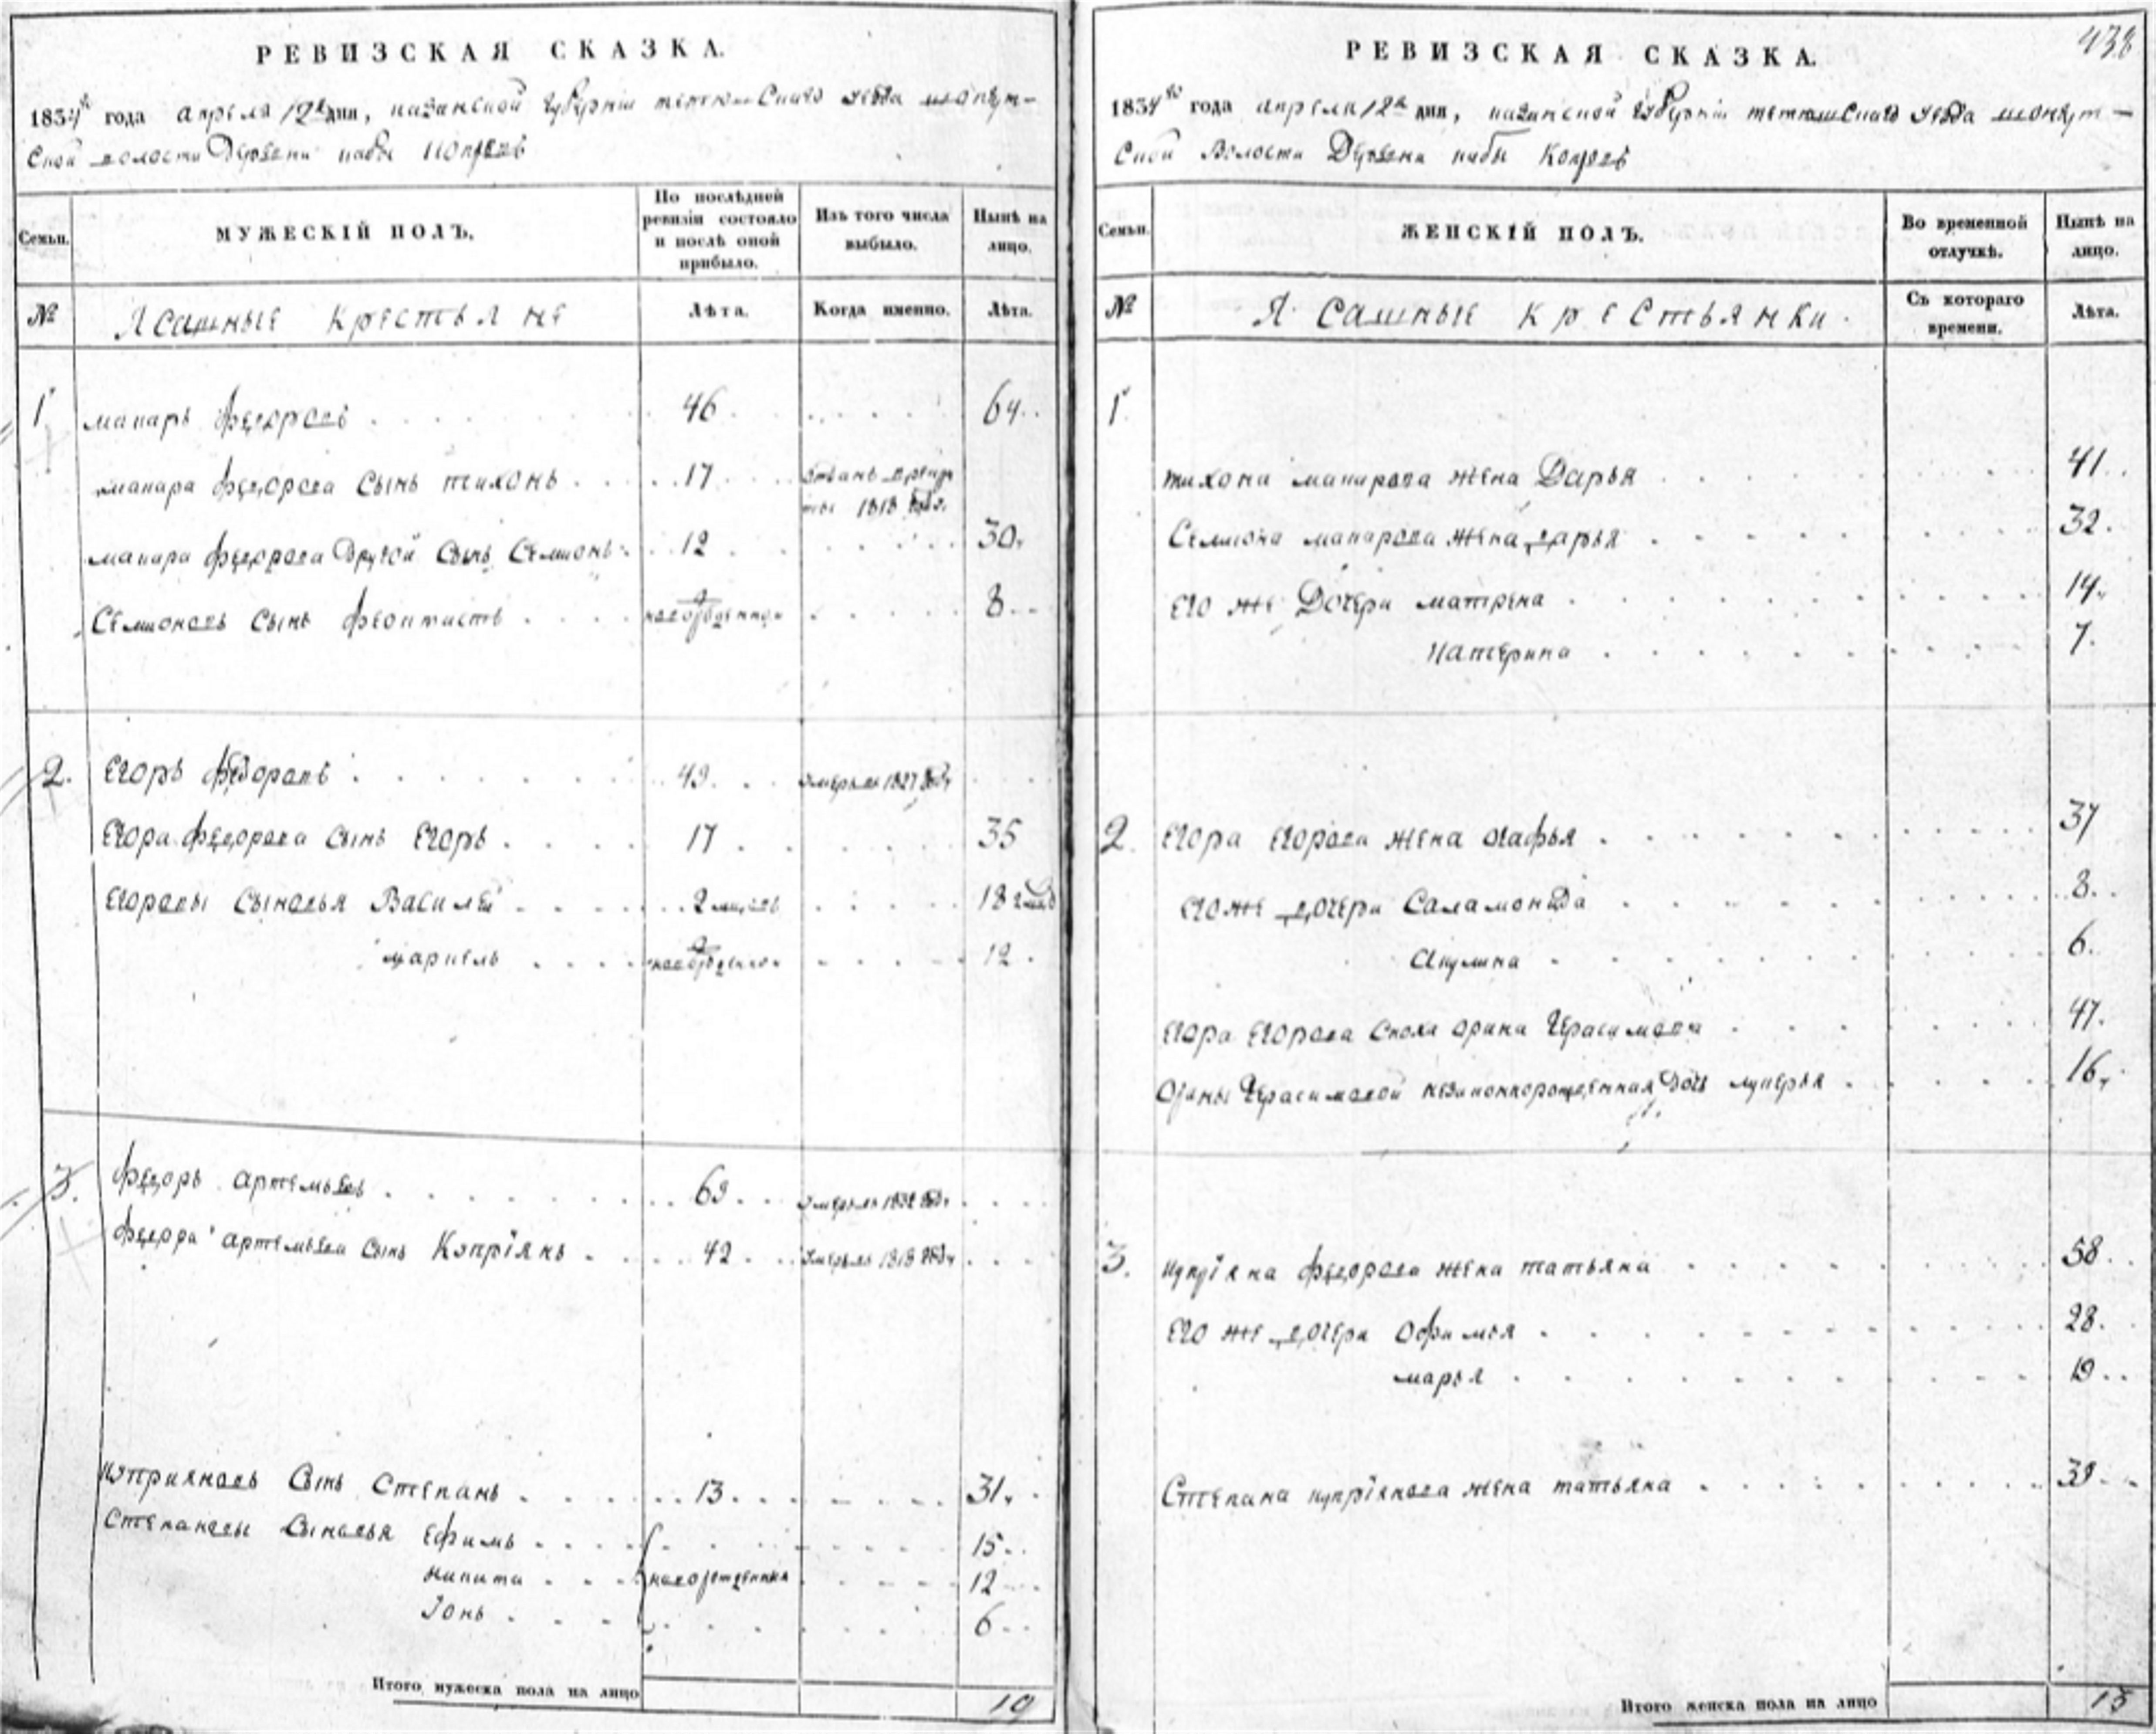 РЕВИЗСКАЯ СКАЗКА.
1834го года апреля 12 дня, казанской губернии тетюшскаго уезда шонкут-
ской волости Деревни кабы Копрев
Семьи. МУЖЕСКІЙ ПОЛЪ. По послѣдней ревизіи состояло и послѣ оной прибыло. Изъ того числа выбыло. Нынѣ на лицо.
№ Ясашные крестьяне Лѣта. Когда именно. Лѣта.
1 макаръ федоровъ 46 64
макара федорова сынъ тихонъ 17 1818
макара федорова Другой сынъ Семионъ 12 30
Семионовъ сынъ феоктистъ 8
2. Егоръ федоровъ 49 умеръ в 1827
Егора федорова сынъ Егоръ 17 35
Егоровы сыновья Василей 2 18
маркелъ 12
3. федоръ артемьевъ 69 умеръ в 1832
федора артемьева сынъ Кэпрїянъ 42 умеръ в 1818
Кэприяновъ сынъ Степанъ 13 31
Степановы сыновья Ефимъ 15
никита 12
Іонъ 6
Итого мужеска пола на лицо 10
438
РЕВИЗСКАЯ СКАЗКА.
1834го года апреля 12 дня, казанской губернии тетюшскаго уезда шонкут-
ской Волости Деревни кабы Копрев
Семьи. ЖЕНСКІЙ ПОЛЪ. Во временной отлучкѣ. Нынѣ на лицо.
№ Ясашные крестьянки Съ котораго времени. Лѣта.
1
тихона макарова жена Дарья 41
Семиона макарова жена дарья 32
Его же Дочери матрена 14
катерина 7
2. Егора Егорова жена агафья 37
его же дочери Саламонида 8
акулина 6
Егора Егорова сноха орина Герасимова 47
Орины Герасимовой незаконнорожденная дочь лукерья 16
3. купрїяна федорова жена татьяна 58
Его же дочери офимья 28
марья 19
Степана купрїянова жена татьяна 39
Итого женска пола на лицо 13